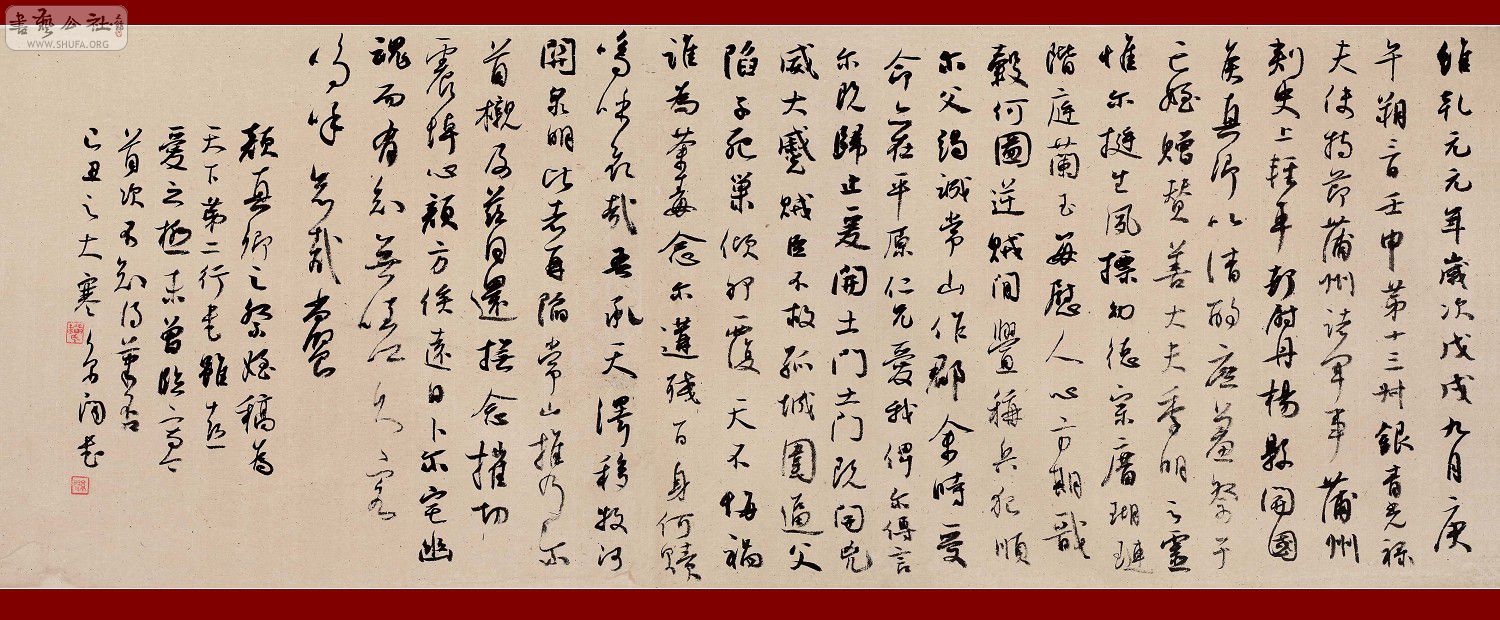 書藝公社
WWW.SHUFA.ORG
維乾元元年歲次戊戌九月庚
午朔三日壬申第十三叔銀青光祿
夫使持節蒲州諸軍事蒲州
刺史上輕車都尉丹楊縣開國
侯真卿以清酌庶羞祭于
亡姪贈贊善大夫季明之靈
惟尔挺生夙標幼德宗廟瑚璉
階庭蘭玉每慰人心方期戩
穀何圖逆賊間釁稱兵犯順
尔父竭誠常山作郡余時受
命亦在平原仁兄愛我俾尔傳言
尔既歸止爰開土門土門既開兇
威大蹙賊臣不救孤城圍逼父
陷子死巢傾卵覆天不悔禍
誰為荼毒念尔遘殘百身何贖
嗚呼哀哉吾承天澤移牧河
關泉明比者再陷常山攜尔
首櫬及茲同還撫念摧切
震悼心顏方俟遠日卜尔宅幽
魂而有知無嗟久客
嗚呼哀哉尚饗
顏真卿之祭姪稿為
天下第二行書雖
愛之極未曾臨寫今
首次不知得筆否
己丑之大寒 書